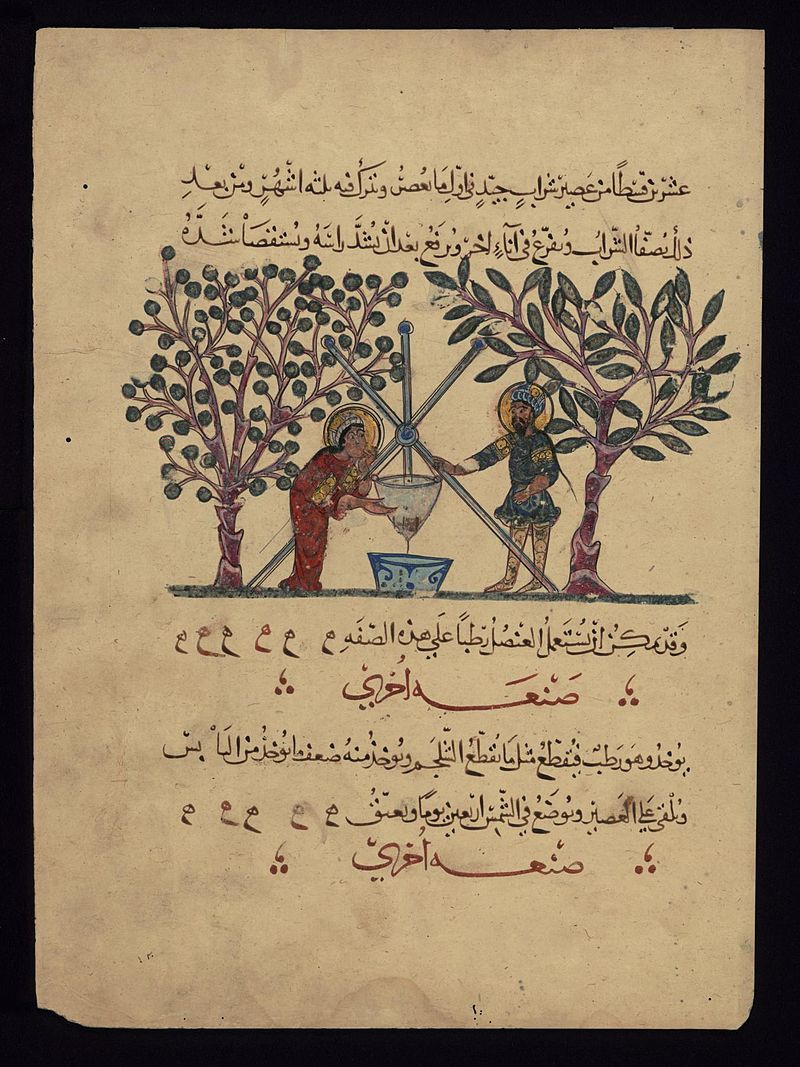 عشرين قسطًا من عصير شراب جيّدٍ في اوّل ما يعصر ويترك فيه ثلثه اشهُرٍ ومن بعد
ذلك يصفّا الشراب ويفرّغ في آناءٍ اخر ويرفع بعد ان يشدّ راسهُ ويستقصا شدّهُ
وقد يمكن ان يستعمل العنصل رطبًا على هذه الصفه م م م م م م
صنعه اخرى
يوخذ وهو رطبٌ فيقطّع مثل ما يقطّع الشلجم ويوخذ منه ضعف ما يوخذ من اليابس
ويلقى على العصير ويوضع في الشمس اربعين يومًا ويعتّقُ م م م م م
صنعه اخرى